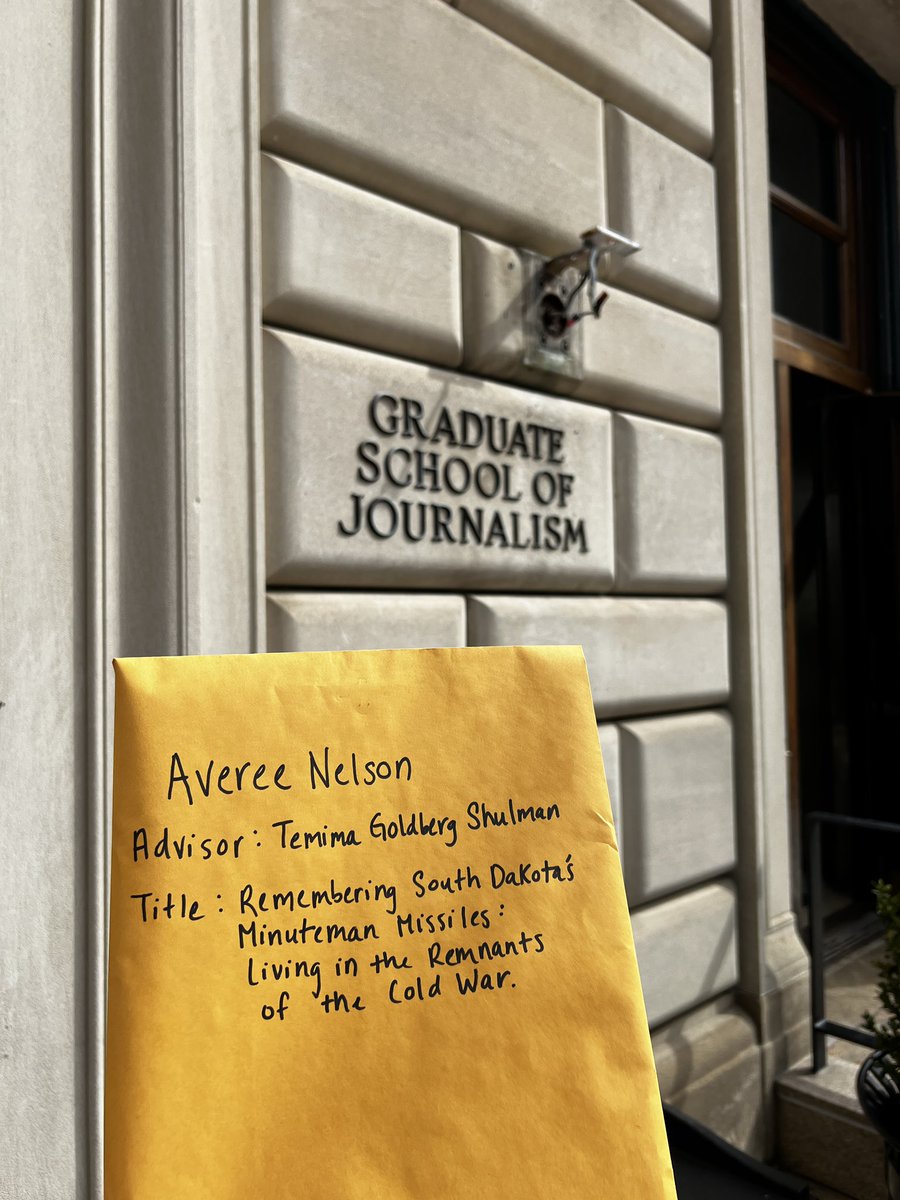 GRADUATE
SCHOOL OF
JOURNALISM
Averee Nelson
Advisor: Temima Goldberg Shulman
Title: Remembering South Dakota's
Minuteman Missiles:
Living in the Remnants
of the Cold War.